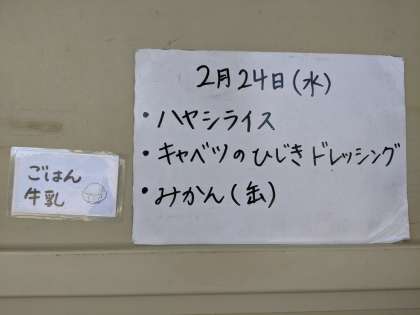 2月24日(水)
・ハヤシライス
・キャベツのひじきドレッシング
・みかん(缶)
ごはん
牛乳